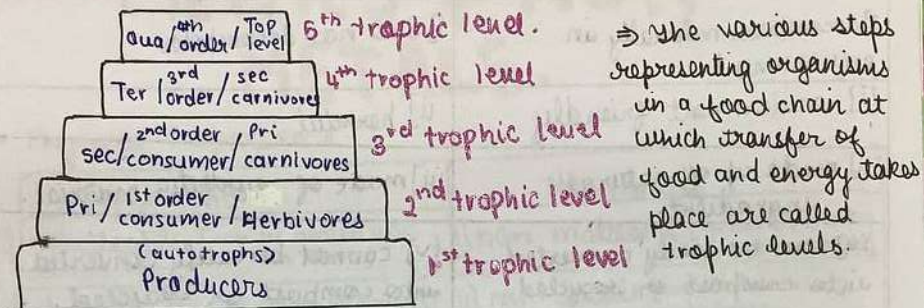 Qua/4th order/Top level 5th trophic level.
Ter/3rd order/sec carnivores 4th trophic level
sec/2nd order consumer/Pri carnivores 3rd trophic level
Pri/1st order consumer/Herbivores 2nd trophic level
(autotrophs)
Producers 1st trophic level
⇒ The various steps
representing organisms
in a food chain at
which transfer of
food and energy takes
place are called
trophic levels.